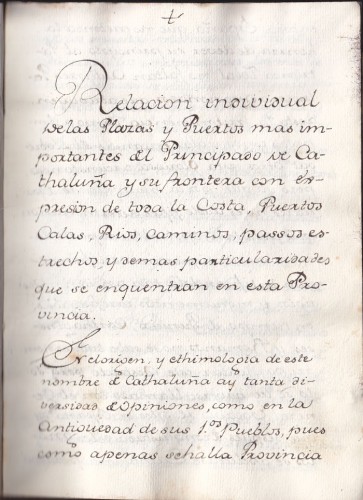 +
Relacion individual
de las Plazas y Puertos mas im-
portantes del Principado de Ca-
thaluña y su frontera con ex-
presion de toda la Costa, Puertos
Calas, Rios, caminos, passos es-
trechos, y demas particularidades
que se enquentran en esta Pro-
vincia.
En el origen, y ethimologia de este
nombre de Cathaluña ay tanta di-
versidad de Opiniones, como en la
Antiguedad de sus 1.os Pueblos, pues
como apenas se halla Provincia